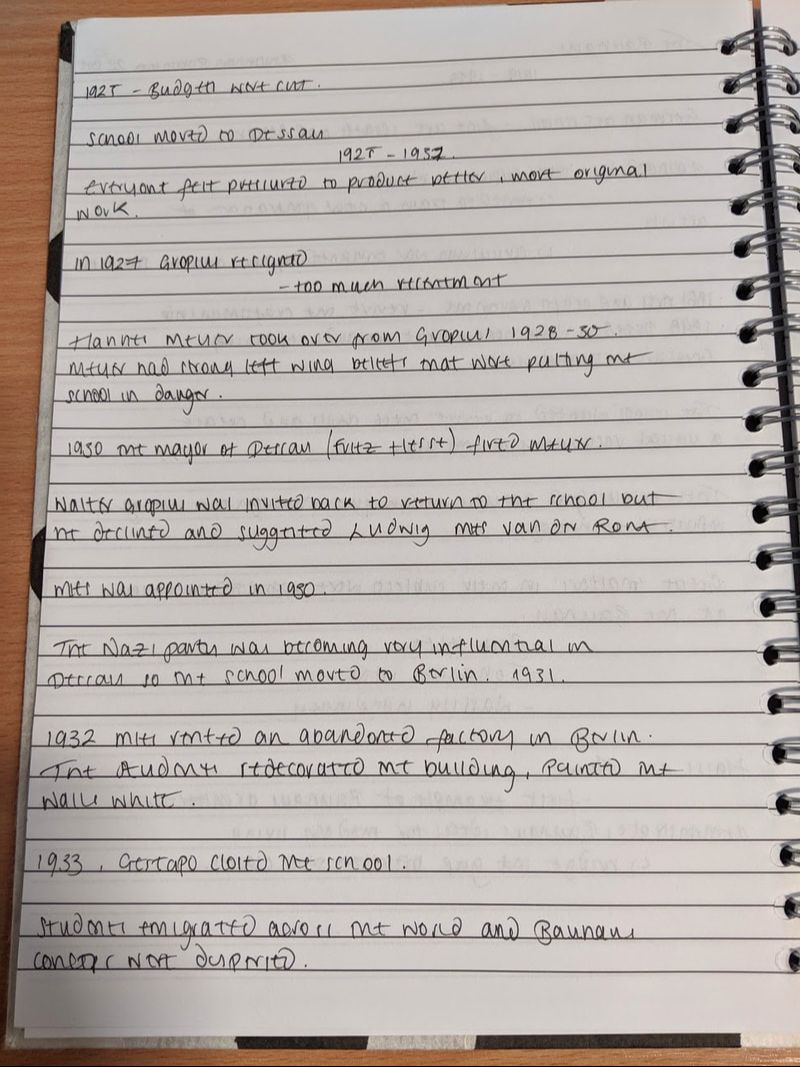 1925 - Budgets were cut.
School moved to Dessau
1925 - 1932.
everyone felt pressured to produce better, more original
work.
In 1927 Gropius resigned
- too much resentment
Hannes Meyer took over from Gropius 1928-30.
Meyer had strong left wing beliefs that were putting the
school in danger.
1930 the mayor of Dessau (Fritz Hesse) fired Meyer.
Walter Gropius was invited back to return to the school but
he declined and suggested Ludwig Mies van der Rohe.
Mies was appointed in 1930.
The Nazi party was becoming very influential in
Dessau so the school moved to Berlin. 1931.
1932 Mies rented an abandoned factory in Berlin.
The students redecorated the building, painted the
walls white.
1933, Gestapo closed the school.
Students emigrated across the world and Bauhaus
were